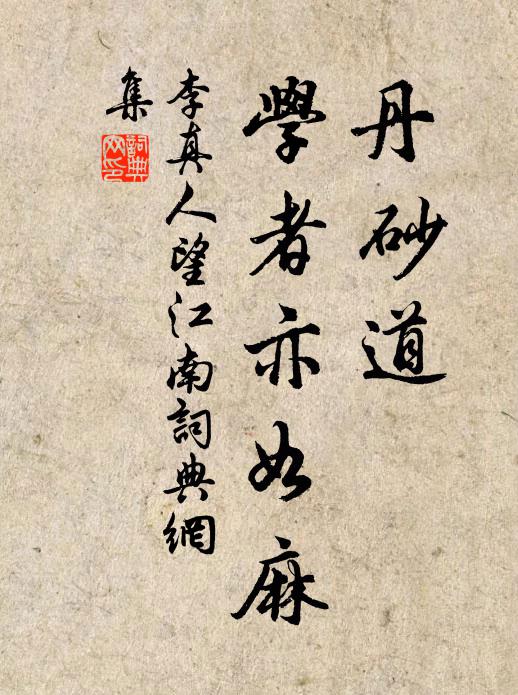 丹砂道
學者亦如麻
李真人望江南詞典網
集
詞典網印